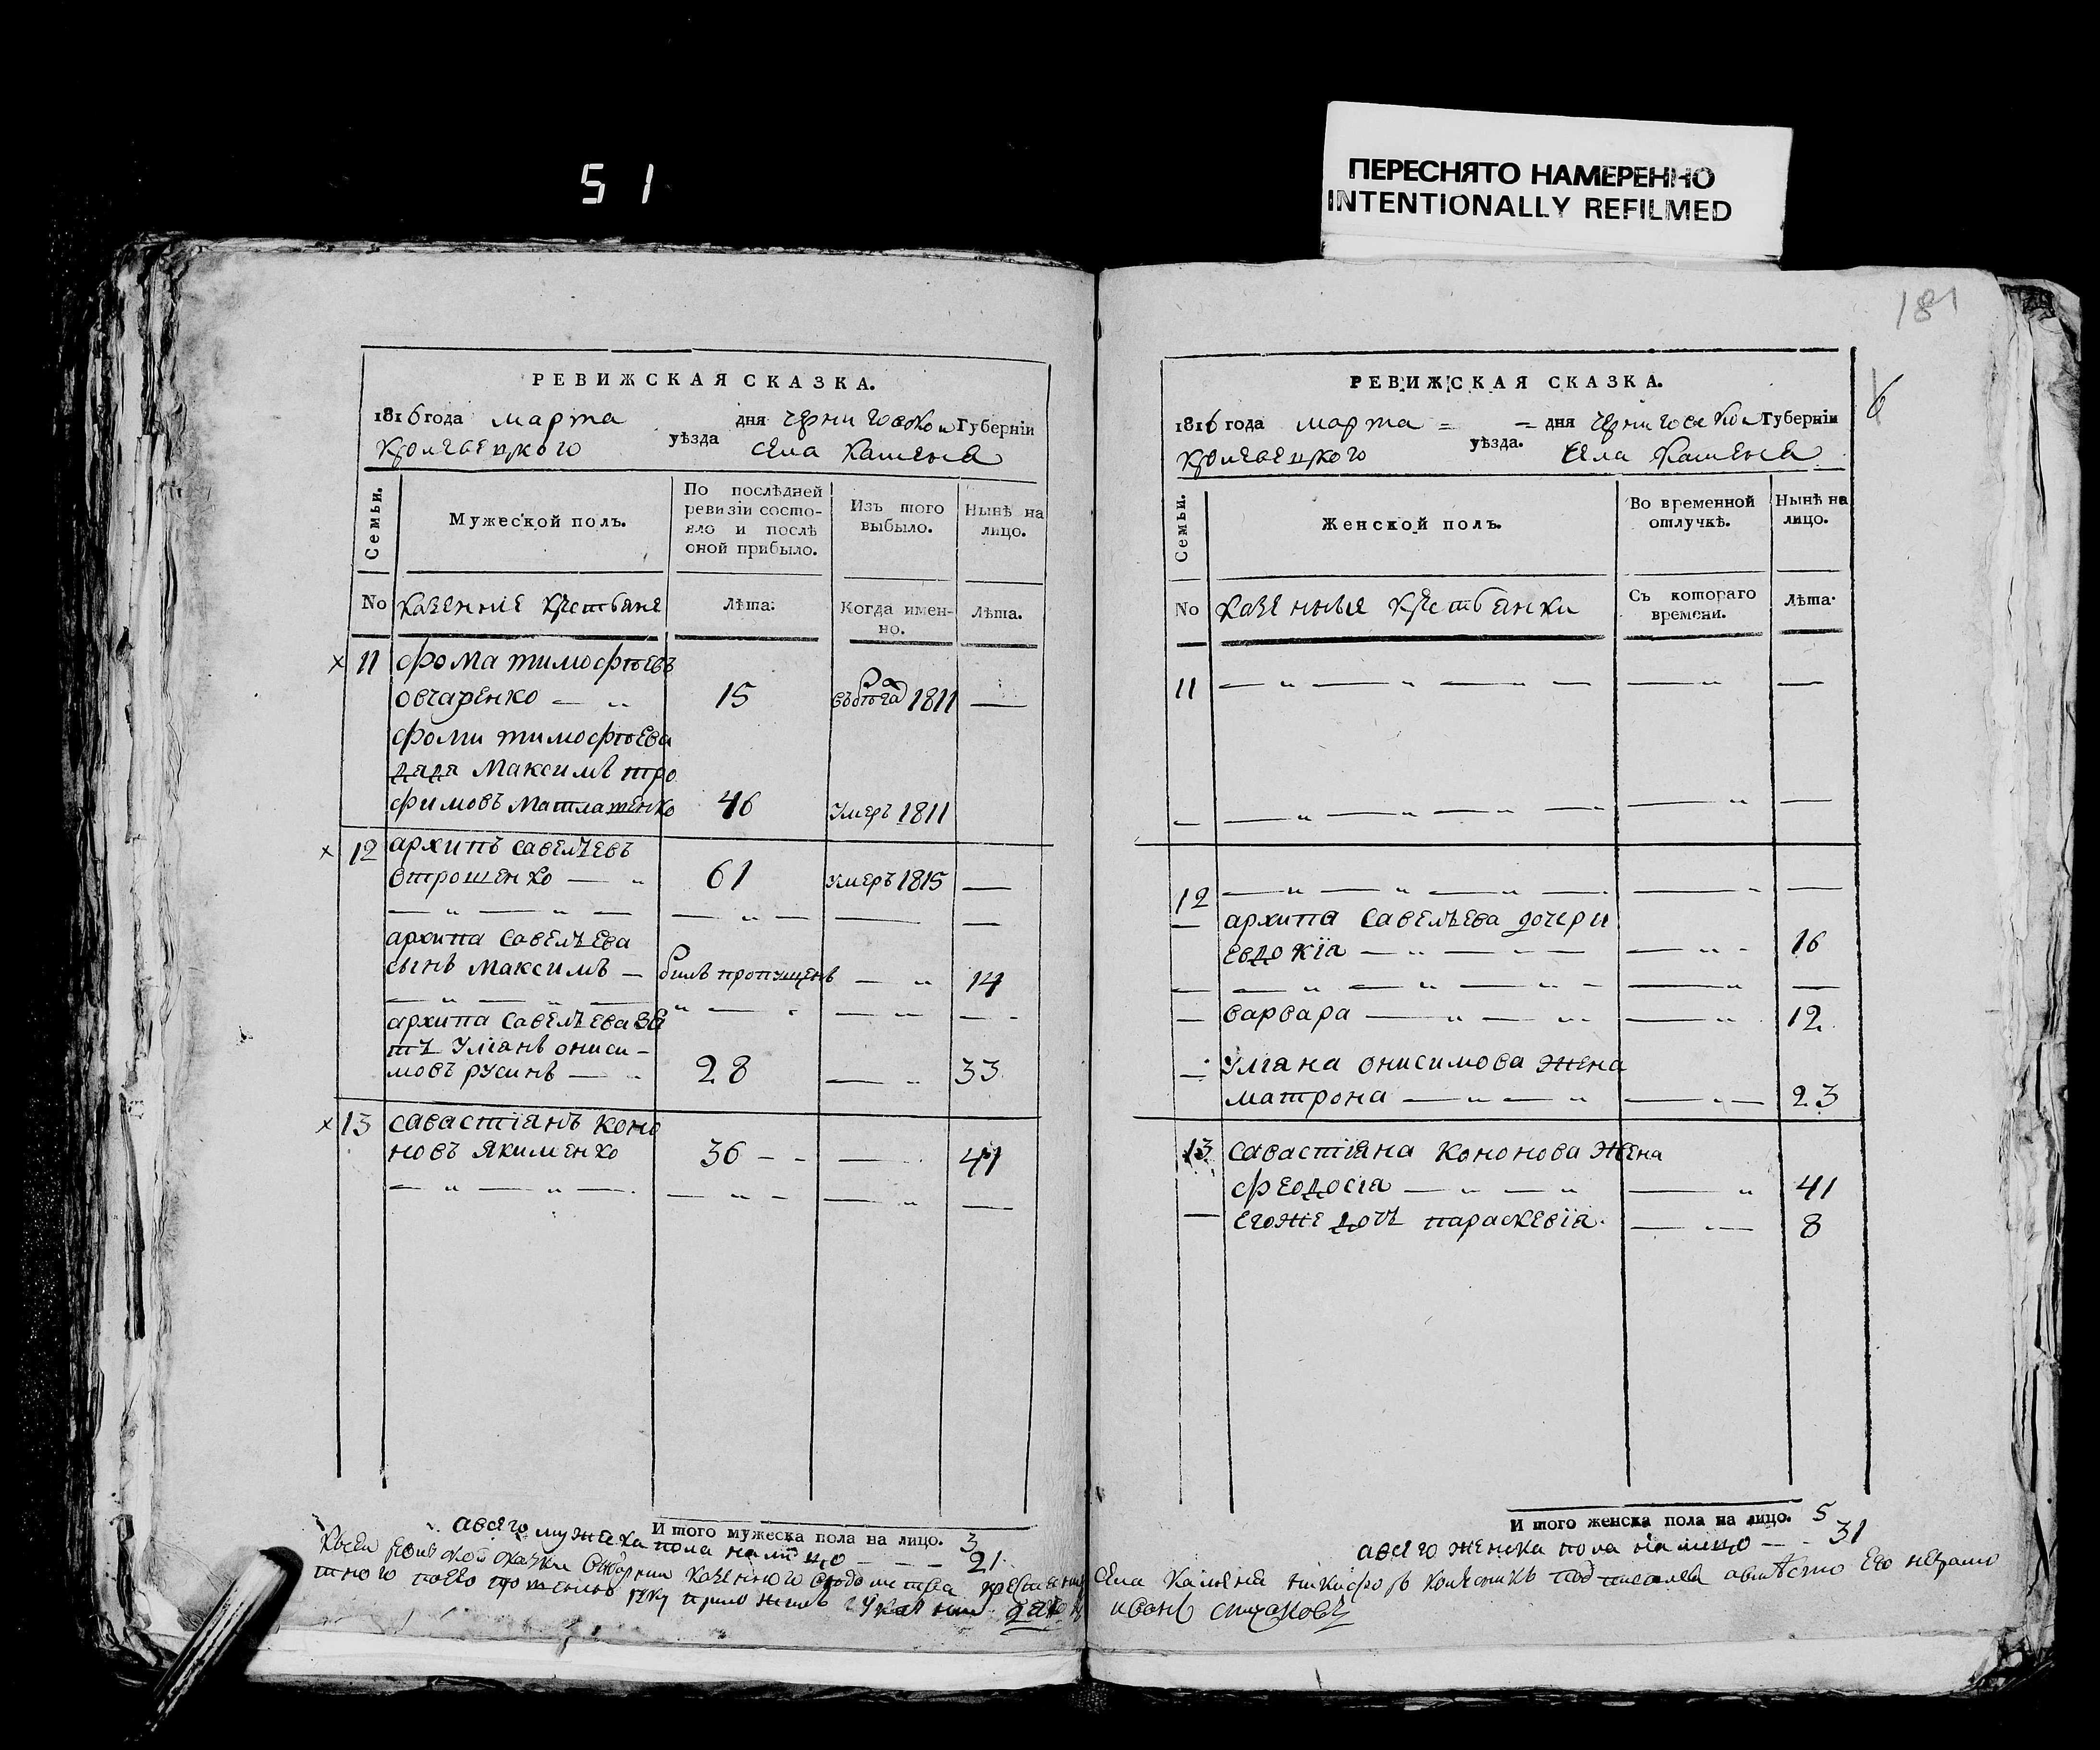 51
ПЕРЕСНЯТО НАМЕРЕННО
INTENTIONALLY REFILMED
181
РЕВИЖСКАЯ СКАЗКА.
1816 года марта дня черниговской Губерніи
кролевецкого уѣзда села Каменя
Семьи.
Мужеской полъ.
По послѣдней ревизіи состояло и послѣ оной прибыло.
Изъ того выбыло.
Нынѣ на лицо.
No казенніе крестьяне
Лѣта.
Когда именно.
Лѣта.
11 фома тимофѣевъ
овчаренко 15 1811
фоми тимофѣева
дядя Максимъ тро
фимовъ Матлатенко 46 умеръ 1811
12 архипъ савелъевъ
отрошенко 61 умеръ 1815
архипа савелъева
сынъ максимъ билъ пропущенъ 14
архипа савелъева зя
тъ уліанъ ониси-
мовъ русинъ 28 33
13 савастіанъ коно
новъ якименко 36 41
Итого мужеска пола на лицо. 3
авсего мужеска пола налицо 21
РЕВИЖСКАЯ СКАЗКА.
1816 года марта дня черниговской Губерніи
кролевецкого уѣзда. села Каменя
Семьи.
Женской полъ.
Во временной отлучкѣ.
Нынѣ на лицо.
No казенные крестьянки
Съ котораго времени.
Лѣта.
11
12
архипа савелъева дочери
евдокіа 16
варвара 12
уліана онисимова жена
матрона 23
13 савастіана кононова жена
феодосіа 41
егоже дочъ параскевіа 8
Итого женска пола на лицо. 5
авсего женска пола налицо 31
Ксей ревиской сказки казенного села Каменя никифоръ
руку приложилъ иванъ